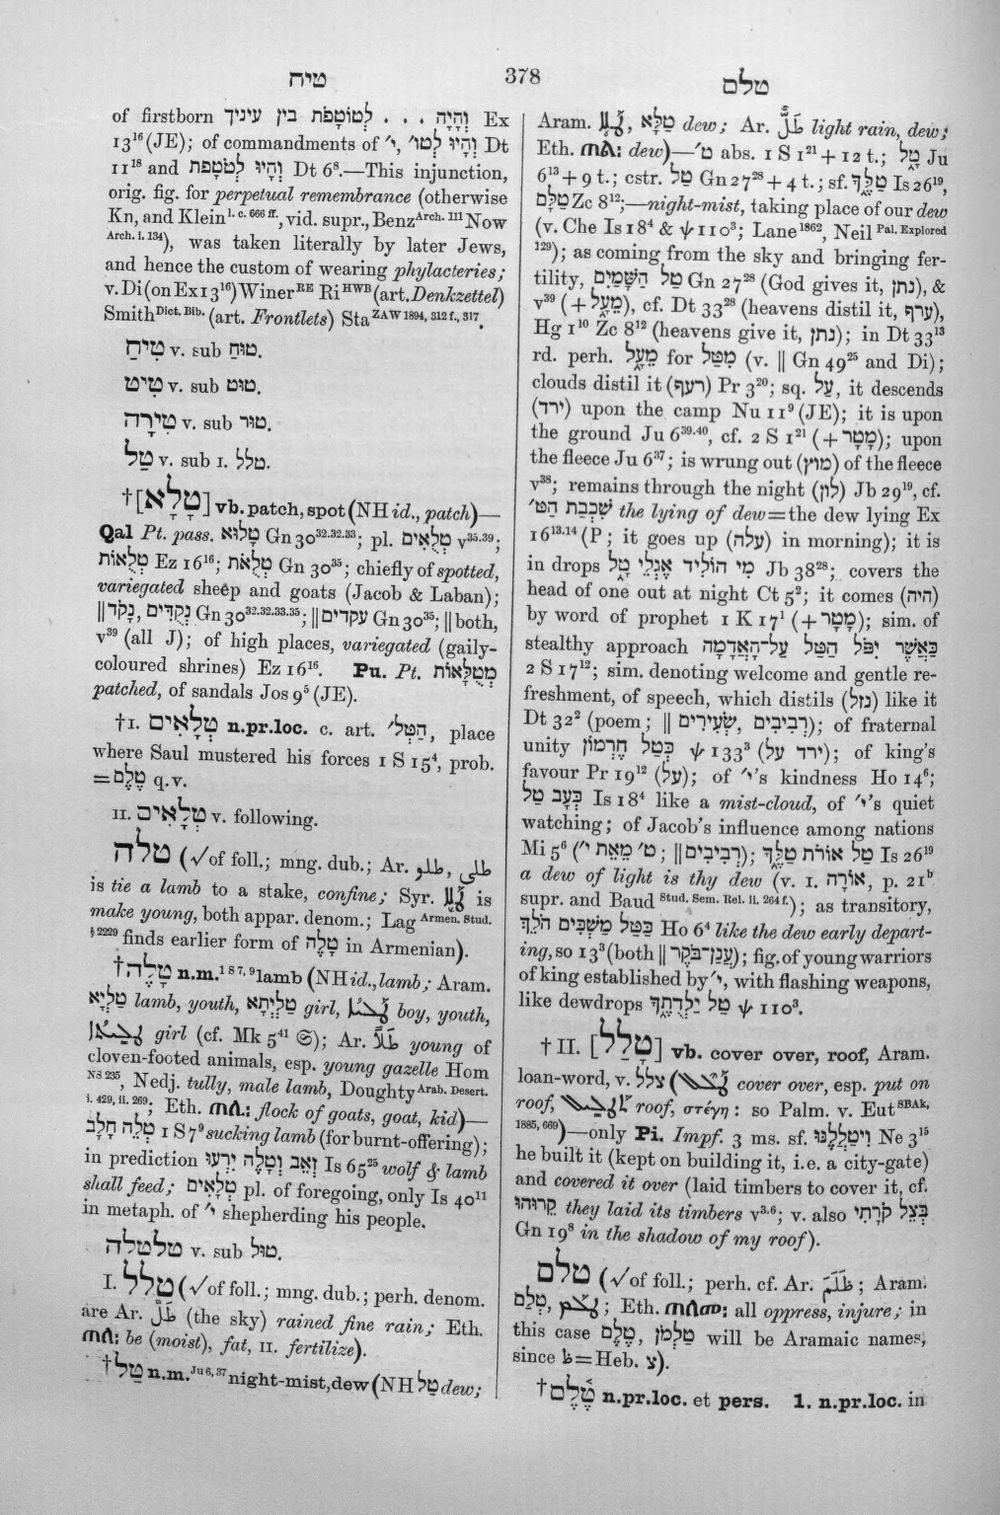 טיח
378
טלם
of firstborn וְהָיָה . . . לְטוֹטָפֹת בין עיניך Ex
13¹⁶ (JE); of commandments of י׳, וְהָיוּ לְטו׳ Dt
11¹⁸ and וְהָיוּ לְטֹטָפֹת Dt 6⁸.—This injunction,
orig. fig. for perpetual remembrance (otherwise
Kn, and Klein l. c. 666 ff., vid. supr., Benz Arch. 111 Now
Arch. i. 134), was taken literally by later Jews,
and hence the custom of wearing phylacteries;
v. Di (on Ex 13¹⁶) Winer RE Ri HWB (art. Denkzettel)
Smith Dict. Bib. (art. Frontlets) Sta ZAW 1894, 312 f., 317.
טִיחַ v. sub טוּחַ.
טִיט v. sub טוט.
טִירָה v. sub טור.
טַל v. sub I. טלל.
†[טָלָא] vb. patch, spot (NH id., patch)—
Qal Pt. pass. טָלוּא Gn 30³²·³²·³³; pl. טְלֻאִים v³⁵·³⁹;
טְלֻאוֹת Ez 16¹⁶; טְלֻאֹת Gn 30³⁵; chiefly of spotted,
variegated sheep and goats (Jacob & Laban);
‖ נָקֹד, נְקֻדִּים Gn 30³²·³²·³³·³⁵; ‖ עקדים Gn 30³⁵; ‖ both,
v³⁹ (all J); of high places, variegated (gaily-
coloured shrines) Ez 16¹⁶. Pu. Pt. מְטֻלָּאוֹת
patched, of sandals Jos 9⁵ (JE).
†I. טְלָאִים n.pr.loc. c. art. הַטְּל׳, place
where Saul mustered his forces 1 S 15⁴, prob.
= טֶלֶם q.v.
II. טְלָאִים v. following.
טלה (√ of foll.; mng. dub.; Ar. طلو, طلى
is tie a lamb to a stake, confine; Syr. is
make young, both appar. denom.; Lag Armen. Stud.
§ 2229 finds earlier form of טָלֶה in Armenian).
†טָלֶה n.m. 1 S 7, 9 lamb (NH id., lamb; Aram.
טַלְיָא lamb, youth, טַלְיְתָא girl, boy, youth,
girl (cf. Mk 5⁴¹ 𝔖); Ar. طَلًا young of
cloven-footed animals, esp. young gazelle Hom
NS 235, Nedj. tully, male lamb, Doughty Arab. Desert.
i. 429, ii. 269; Eth. flock of goats, goat, kid)—
טְלֵה חָלָב 1 S 7⁹ sucking lamb (for burnt-offering);
in prediction זְאֵב וְטָלֶה יִרְעוּ Is 65²⁵ wolf & lamb
shall feed; טְלָאִים pl. of foregoing, only Is 40¹¹
in metaph. of י׳ shepherding his people.
טלטלה v. sub טול.
I. טלל (√ of foll.; mng. dub.; perh. denom.
are Ar. طَلَّ (the sky) rained fine rain; Eth.
be (moist), fat, II. fertilize).
†טַל n.m. Ju 6, 37 night-mist, dew (NH טַל dew;
Aram. טַלָּא, dew; Ar. طَلٌّ light rain, dew;
Eth. ጠል: dew)—ט׳ abs. 1 S 1²¹ + 12 t.; טָ֑ל Ju
6¹³ + 9 t.; cstr. טַל Gn 27²⁸ + 4 t.; sf. טַלֶּךָ Is 26¹⁹,
טַלָּם Zc 8¹²;—night-mist, taking place of our dew
(v. Che Is 18⁴ & ψ 110³; Lane 1862, Neil Pal. Explored
129); as coming from the sky and bringing fer-
tility, טַל הַשָּׁמַיִם Gn 27²⁸ (God gives it, נתן), &
v³⁹ (+ מֵעָ֑ל), cf. Dt 33²⁸ (heavens distil it, ערף),
Hg 1¹⁰ Zc 8¹² (heavens give it, נתן); in Dt 33¹³
rd. perh. מֵעָ֑ל for מִטַּל (v. ‖ Gn 49²⁵ and Di);
clouds distil it (רעף) Pr 3²⁰; sq. עַל, it descends
(ירד) upon the camp Nu 11⁹ (JE); it is upon
the ground Ju 6³⁹·⁴⁰, cf. 2 S 1²¹ (+ מָטָר); upon
the fleece Ju 6³⁷; is wrung out (מוץ) of the fleece
v³⁸; remains through the night (לן) Jb 29¹⁹, cf.
שִׁכְבַת הַטּ׳ the lying of dew = the dew lying Ex
16¹³·¹⁴ (P; it goes up (עלה) in morning); it is
in drops מִי הוֹלִיד אֶגְלֵי טָ֑ל Jb 38²⁸; covers the
head of one out at night Ct 5²; it comes (היה)
by word of prophet 1 K 17¹ (+ מָטָר); sim. of
stealthy approach כַּאֲשֶׁר יִפֹּל הַטַּל עַל־הָאֲדָמָה
2 S 17¹²; sim. denoting welcome and gentle re-
freshment, of speech, which distils (נזל) like it
Dt 32² (poem; ‖ שְׂעִירִים, רְבִיבִים); of fraternal
unity כְּטַל חֶרְמוֹן ψ 133³ (ירד על); of king's
favour Pr 19¹² (על); of י׳'s kindness Ho 14⁶;
כְּעָב טַל Is 18⁴ like a mist-cloud, of י׳'s quiet
watching; of Jacob's influence among nations
Mi 5⁶ (ט׳ מֵאֵת י׳; ‖ רְבִיבִים); טַל אוֹרֹת טַלֶּךָ Is 26¹⁹
a dew of light is thy dew (v. I. אוֹרָה, p. 21ᵇ
supr. and Baud Stud. Sem. Rel. ii. 264 f.); as transitory,
כַּטַּל מַשְׁכִּים הֹלֵךְ Ho 6⁴ like the dew early depart-
ing, so 13³ (both ‖ עֲנַן־בֹּקֶר); fig. of young warriors
of king established by י׳, with flashing weapons,
like dewdrops טַל יַלְדֻתֶךָ ψ 110³.
†II. [טָלַל] vb. cover over, roof, Aram.
loan-word, v. צלל ( cover over, esp. put on
roof, roof, στέγη: so Palm. v. Eut SBAk,
1885, 669)—only Pi. Impf. 3 ms. sf. וִיטַלֲלֶנּוּ Ne 3¹⁵
he built it (kept on building it, i.e. a city-gate)
and covered it over (laid timbers to cover it, cf.
קֵרוּהוּ they laid its timbers v³·⁶; v. also בְּצֵל קֹרָתִי
Gn 19⁸ in the shadow of my roof).
טלם (√ of foll.; perh. cf. Ar. ظَلَمَ; Aram.
טְלַם, ; Eth. all oppress, injure; in
this case טֶלֶם, טַלְמֹן will be Aramaic names,
since ظ = Heb. צ).
†טֶלֶם n.pr.loc. et pers. 1. n.pr.loc. in